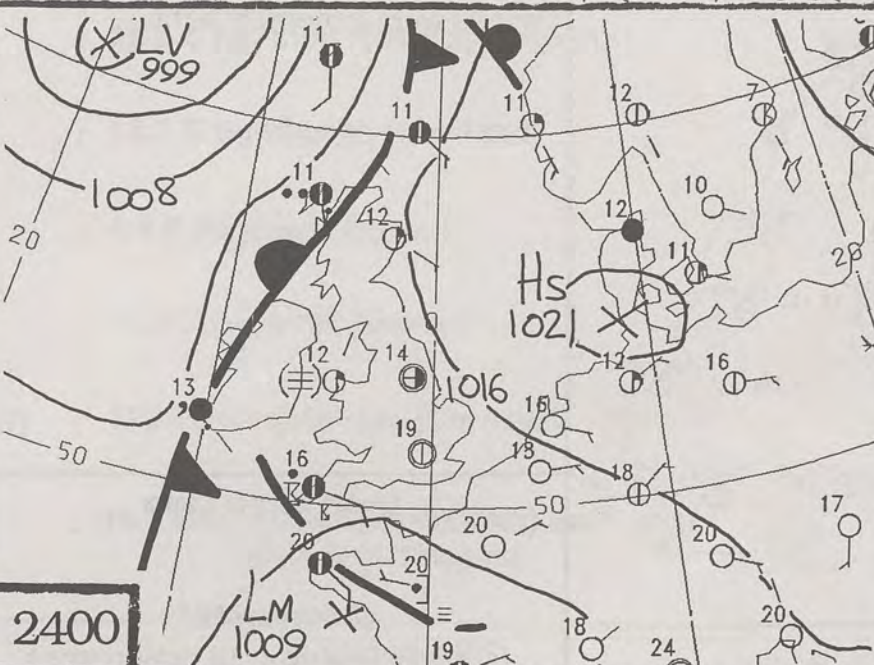 LV
999
11
11
11
12
7
1008
11
12
10
12
11
20
Hs
1021
12
14
1016
12
16
13
19
15
13
50
16
18
50
20
20
20
17
20
2400
LM
1009
20
18
24
19